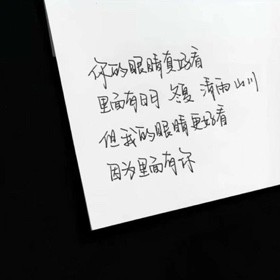 你的眼睛真好看
里面有日月 冬夏 清雨 山川
但我的眼睛更好看
因为里面有你